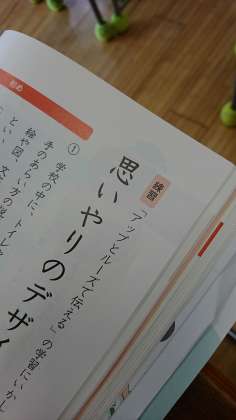 初め
練習
「アップとルーズで伝える」の学習にいかし
思いやりのデザイ
①
学校の中に、トイレ
手のあらい方の説
絵や図、文
といい